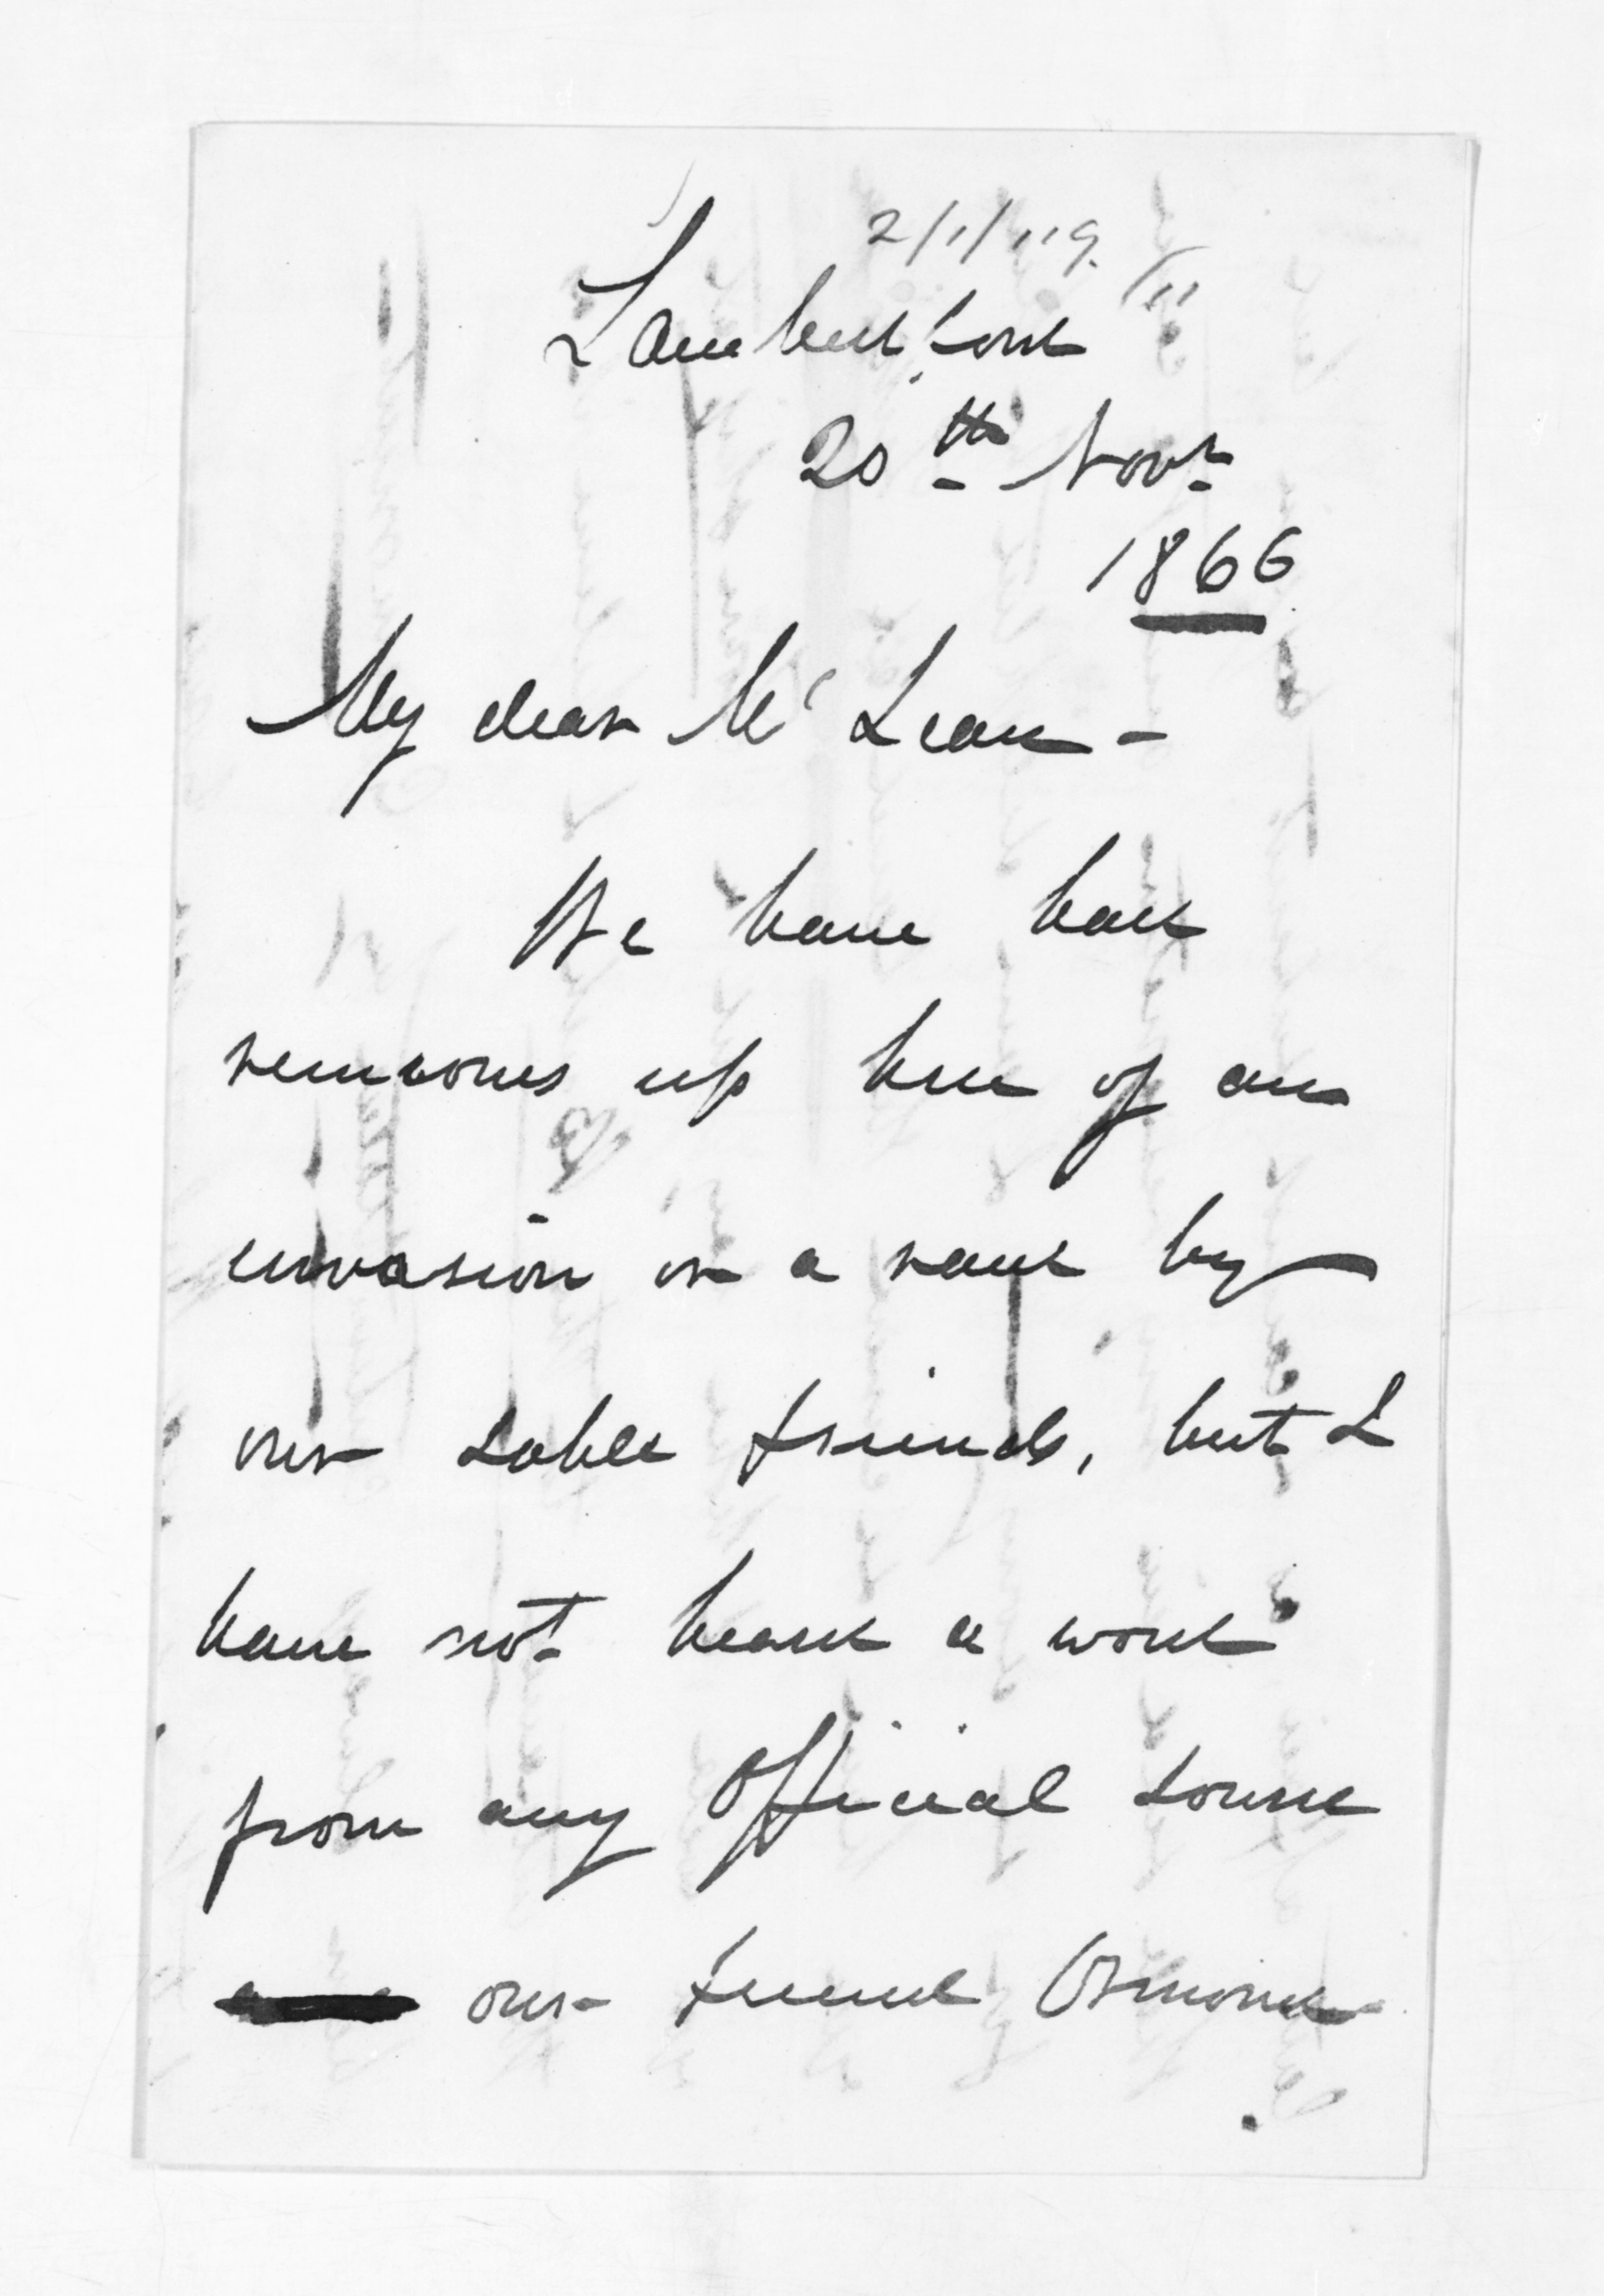 2/11/119.
Lambertford
20th Novr
1866
My dear McLean -
We have had
rumours up here of an
invasion or a raid by
our sable friends, but I
have not heard a word
from any Official source
our friend Ormond